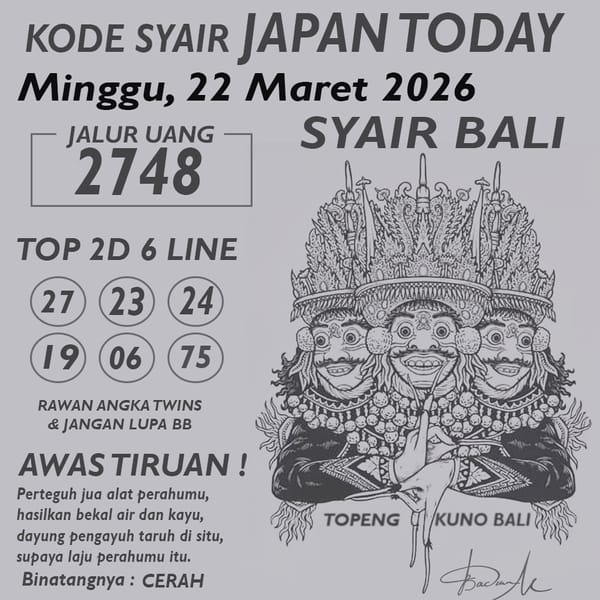 KODE SYAIR JAPAN TODAY
Minggu, 22 Maret 2026
JALUR UANG
2748
SYAIR BALI
TOP 2D 6 LINE
27 23 24
19 06 75
RAWAN ANGKA TWINS
& JANGAN LUPA BB
AWAS TIRUAN !
Perteguh jua alat perahumu,
hasilkan bekal air dan kayu,
dayung pengayuh taruh di situ,
supaya laju perahumu itu.
Binatangnya : CERAH
TOPENG KUNO BALI